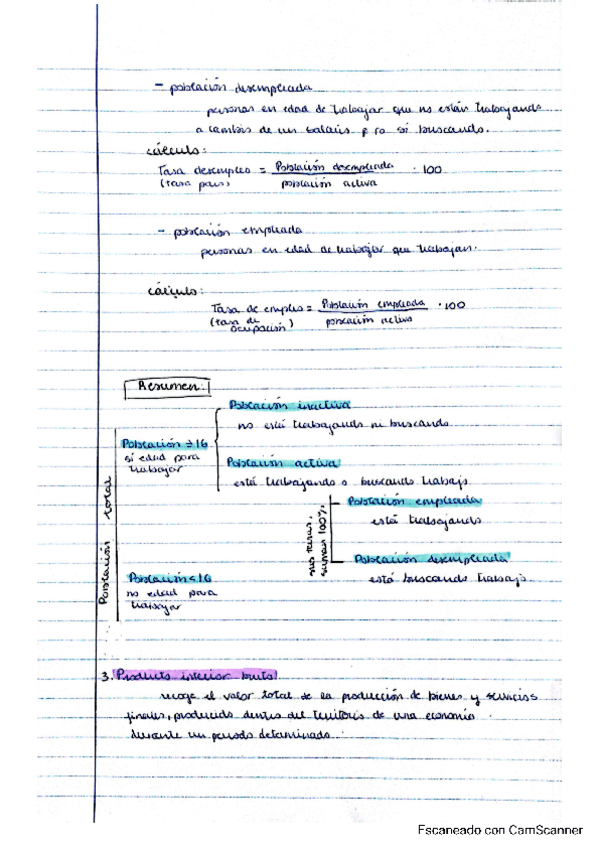 - población desempleada
personas en edad de trabajar que no están trabajando
a cambio de un salario p ro sí buscando.
cálculo:
Tasa desempleo = Población desempleada / población activa · 100
(tasa paro)
- población empleada
personas en edad de trabajar que trabajan.
cálculo:
Tasa de empleo = Población empleada / población activa · 100
(tasa de ocupación)
Resumen:
Población total
Población ≥ 16
sí edad para
trabajar
Población inactiva
no está trabajando ni buscando
Población activa
está trabajando o buscando trabajo
sus tasas,
suman 100%.
Población empleada
está trabajando
Población desempleada
está buscando trabajo
Población < 16
no edad para
trabajar
3. Producto interior bruto
recoge el valor total de la producción de bienes y servicios
finales, producido dentro del territorio de una economía
durante un periodo determinado.
Escaneado con CamScanner